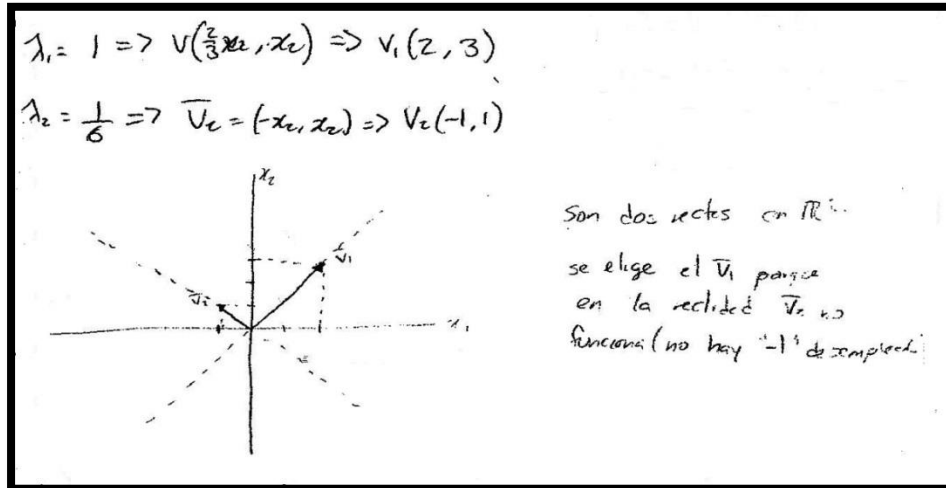 λ₁ = 1 => V(2/3 x₂, x₂) => V₁(2, 3)
λ₂ = 1/6 => V̄₂ = (-x₂, x₂) => V₂(-1, 1)
x₂
V̄₁
V̄₂
x₁
Son dos rectas en ℝ²
se elige el V̄₁ porque
en la realidad V̄₂ no
funciona (no hay "-1" desempleado